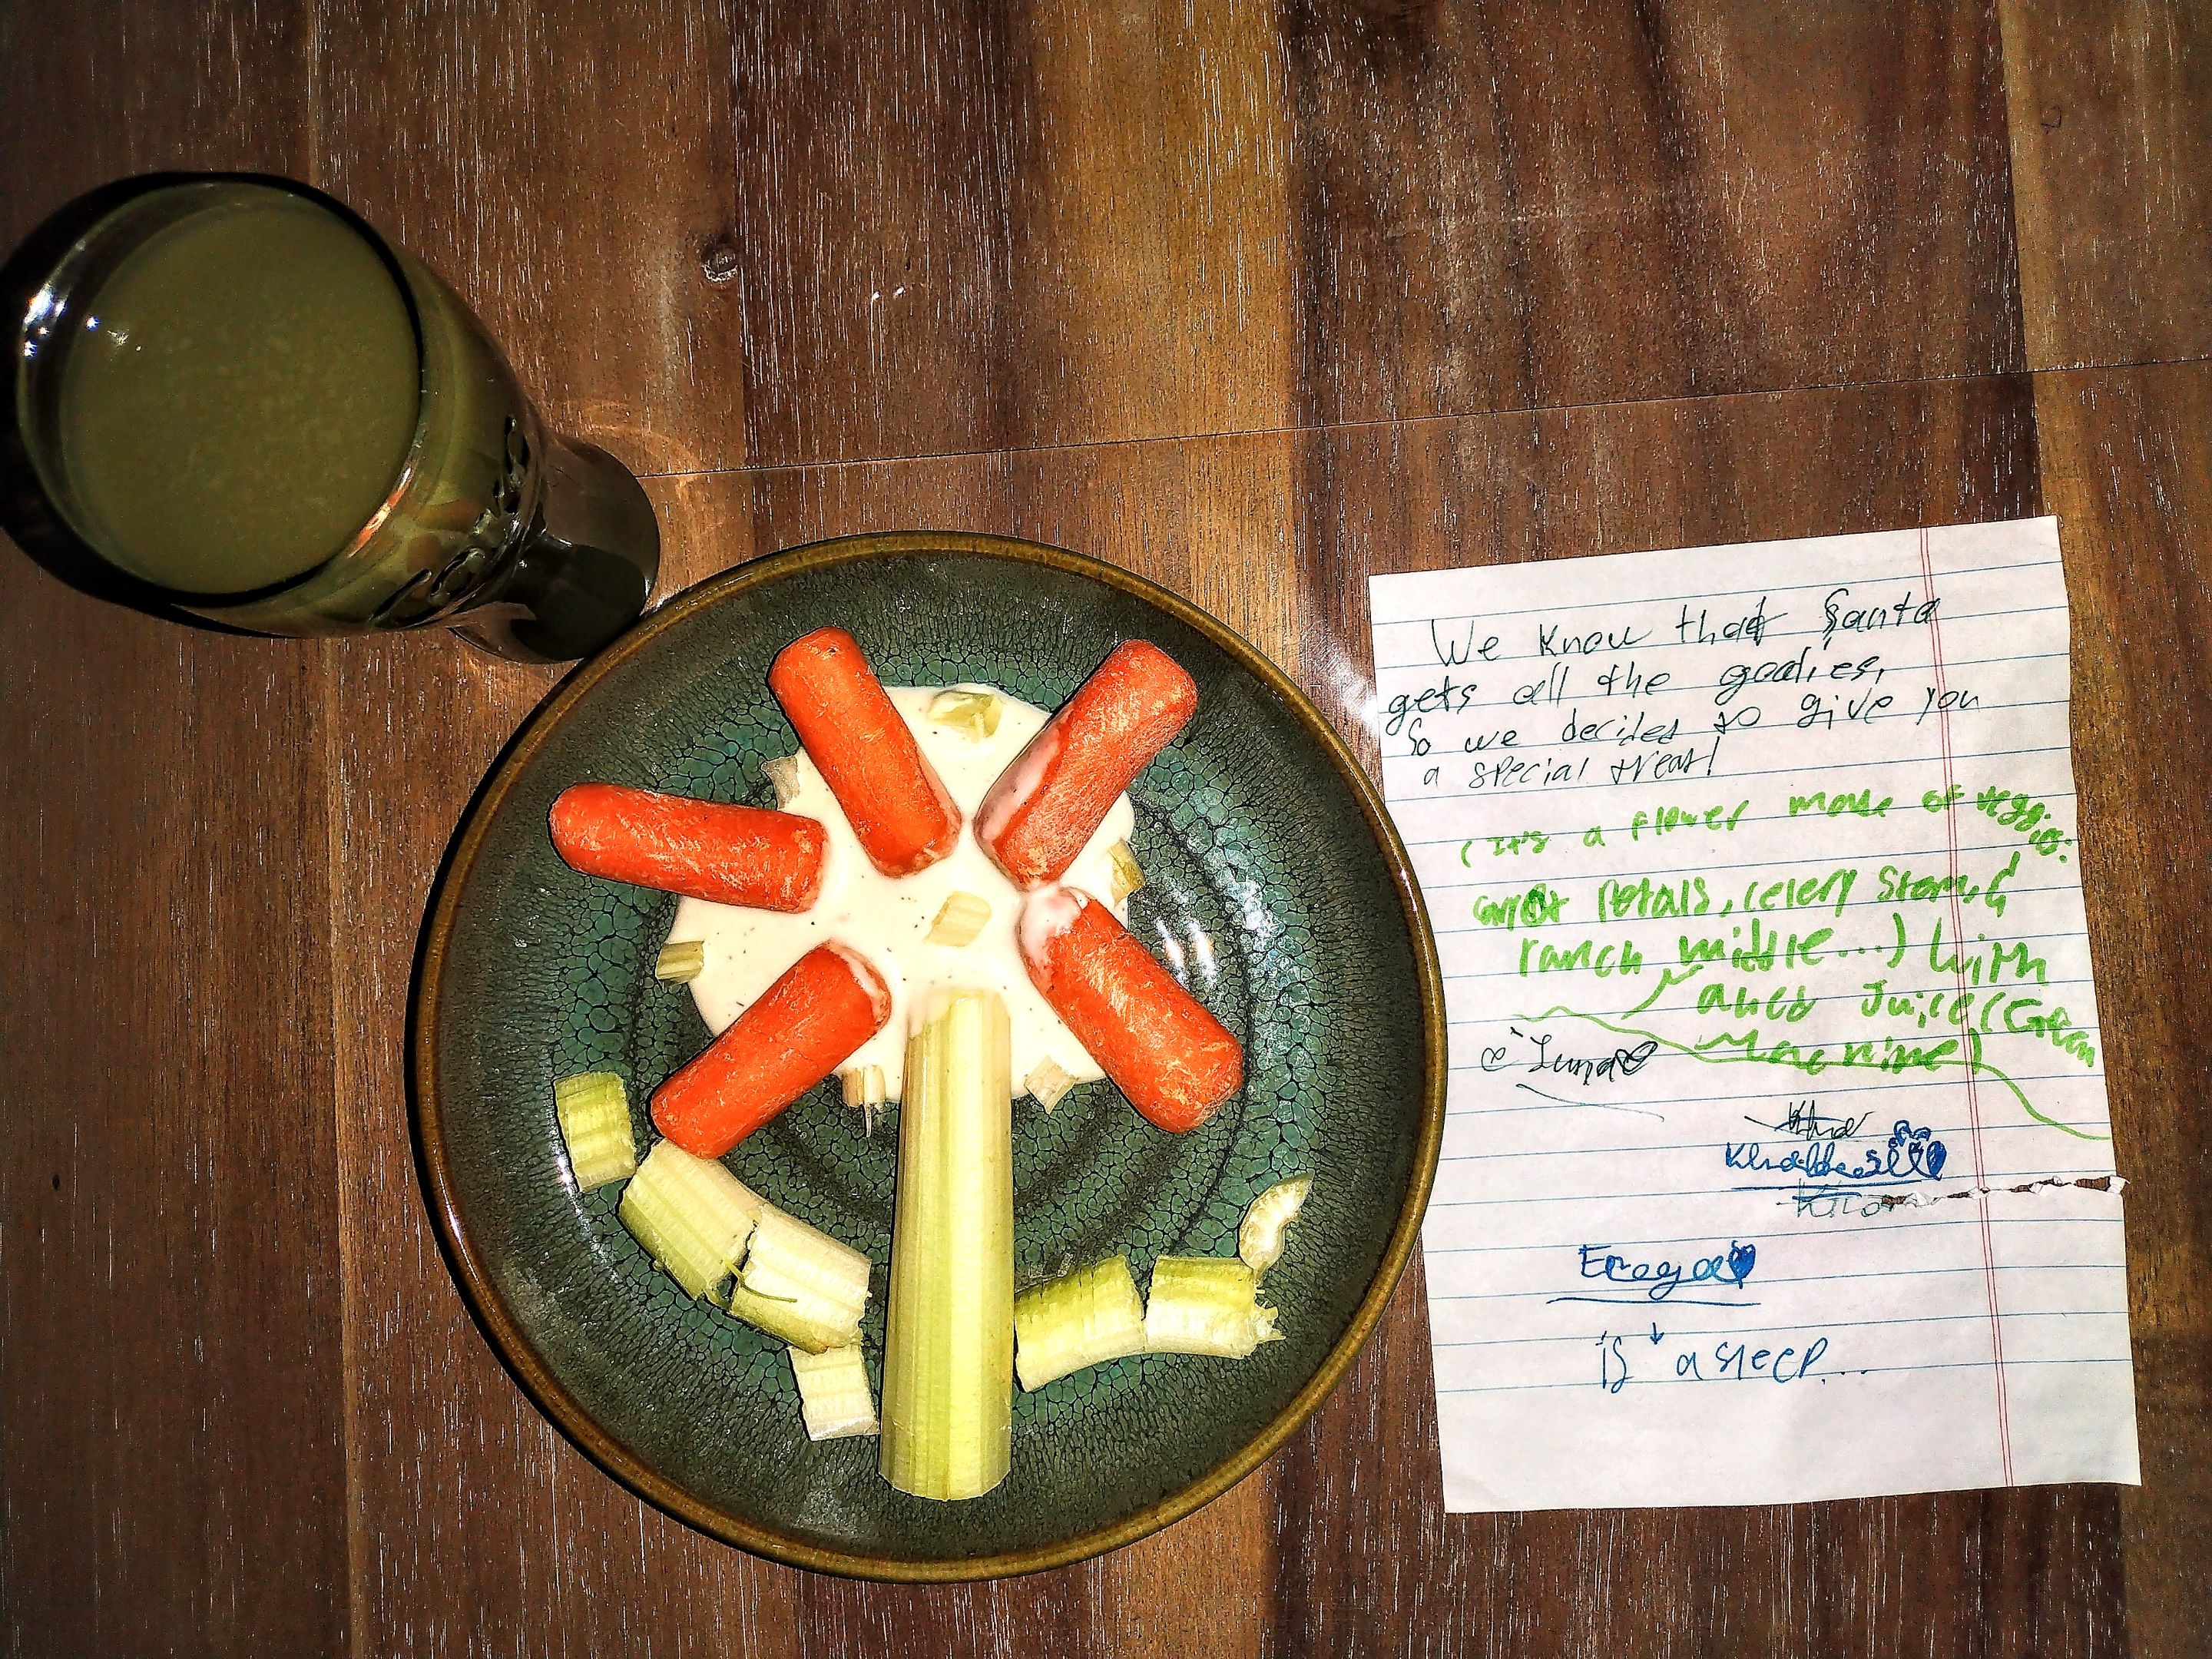 We know that Santa
gets all the goodies,
So we decided to give you
a special treat!
(It's a flower made of veggies:
carrot Petals, celery stem, &
ranch middle...) With
and Juice (Green
Machine)
Luna
Kha
is asleep...